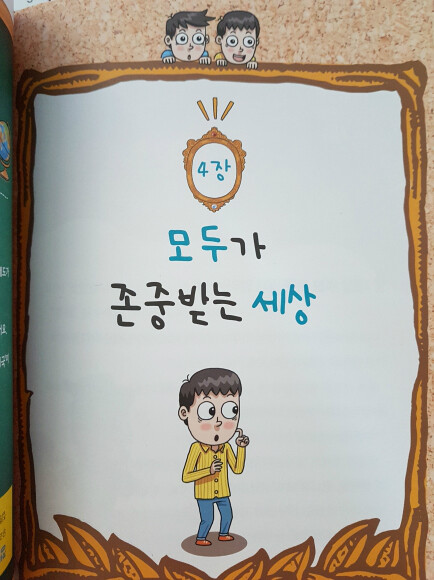 4장
모두가
존중받는 세상